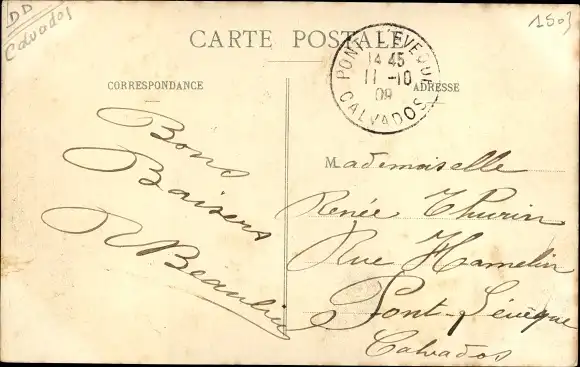 DD
Calvados
1503
CARTE POSTALE
PONT L'EVEQUE
14 45
11 -10
09
CALVADOS
CORRESPONDANCE
ADRESSE
Bons
Baisers
R Beaulieu
Mademoiselle
Renée Thurin
Rue Hamelin
Pont-Lévêque
Calvados